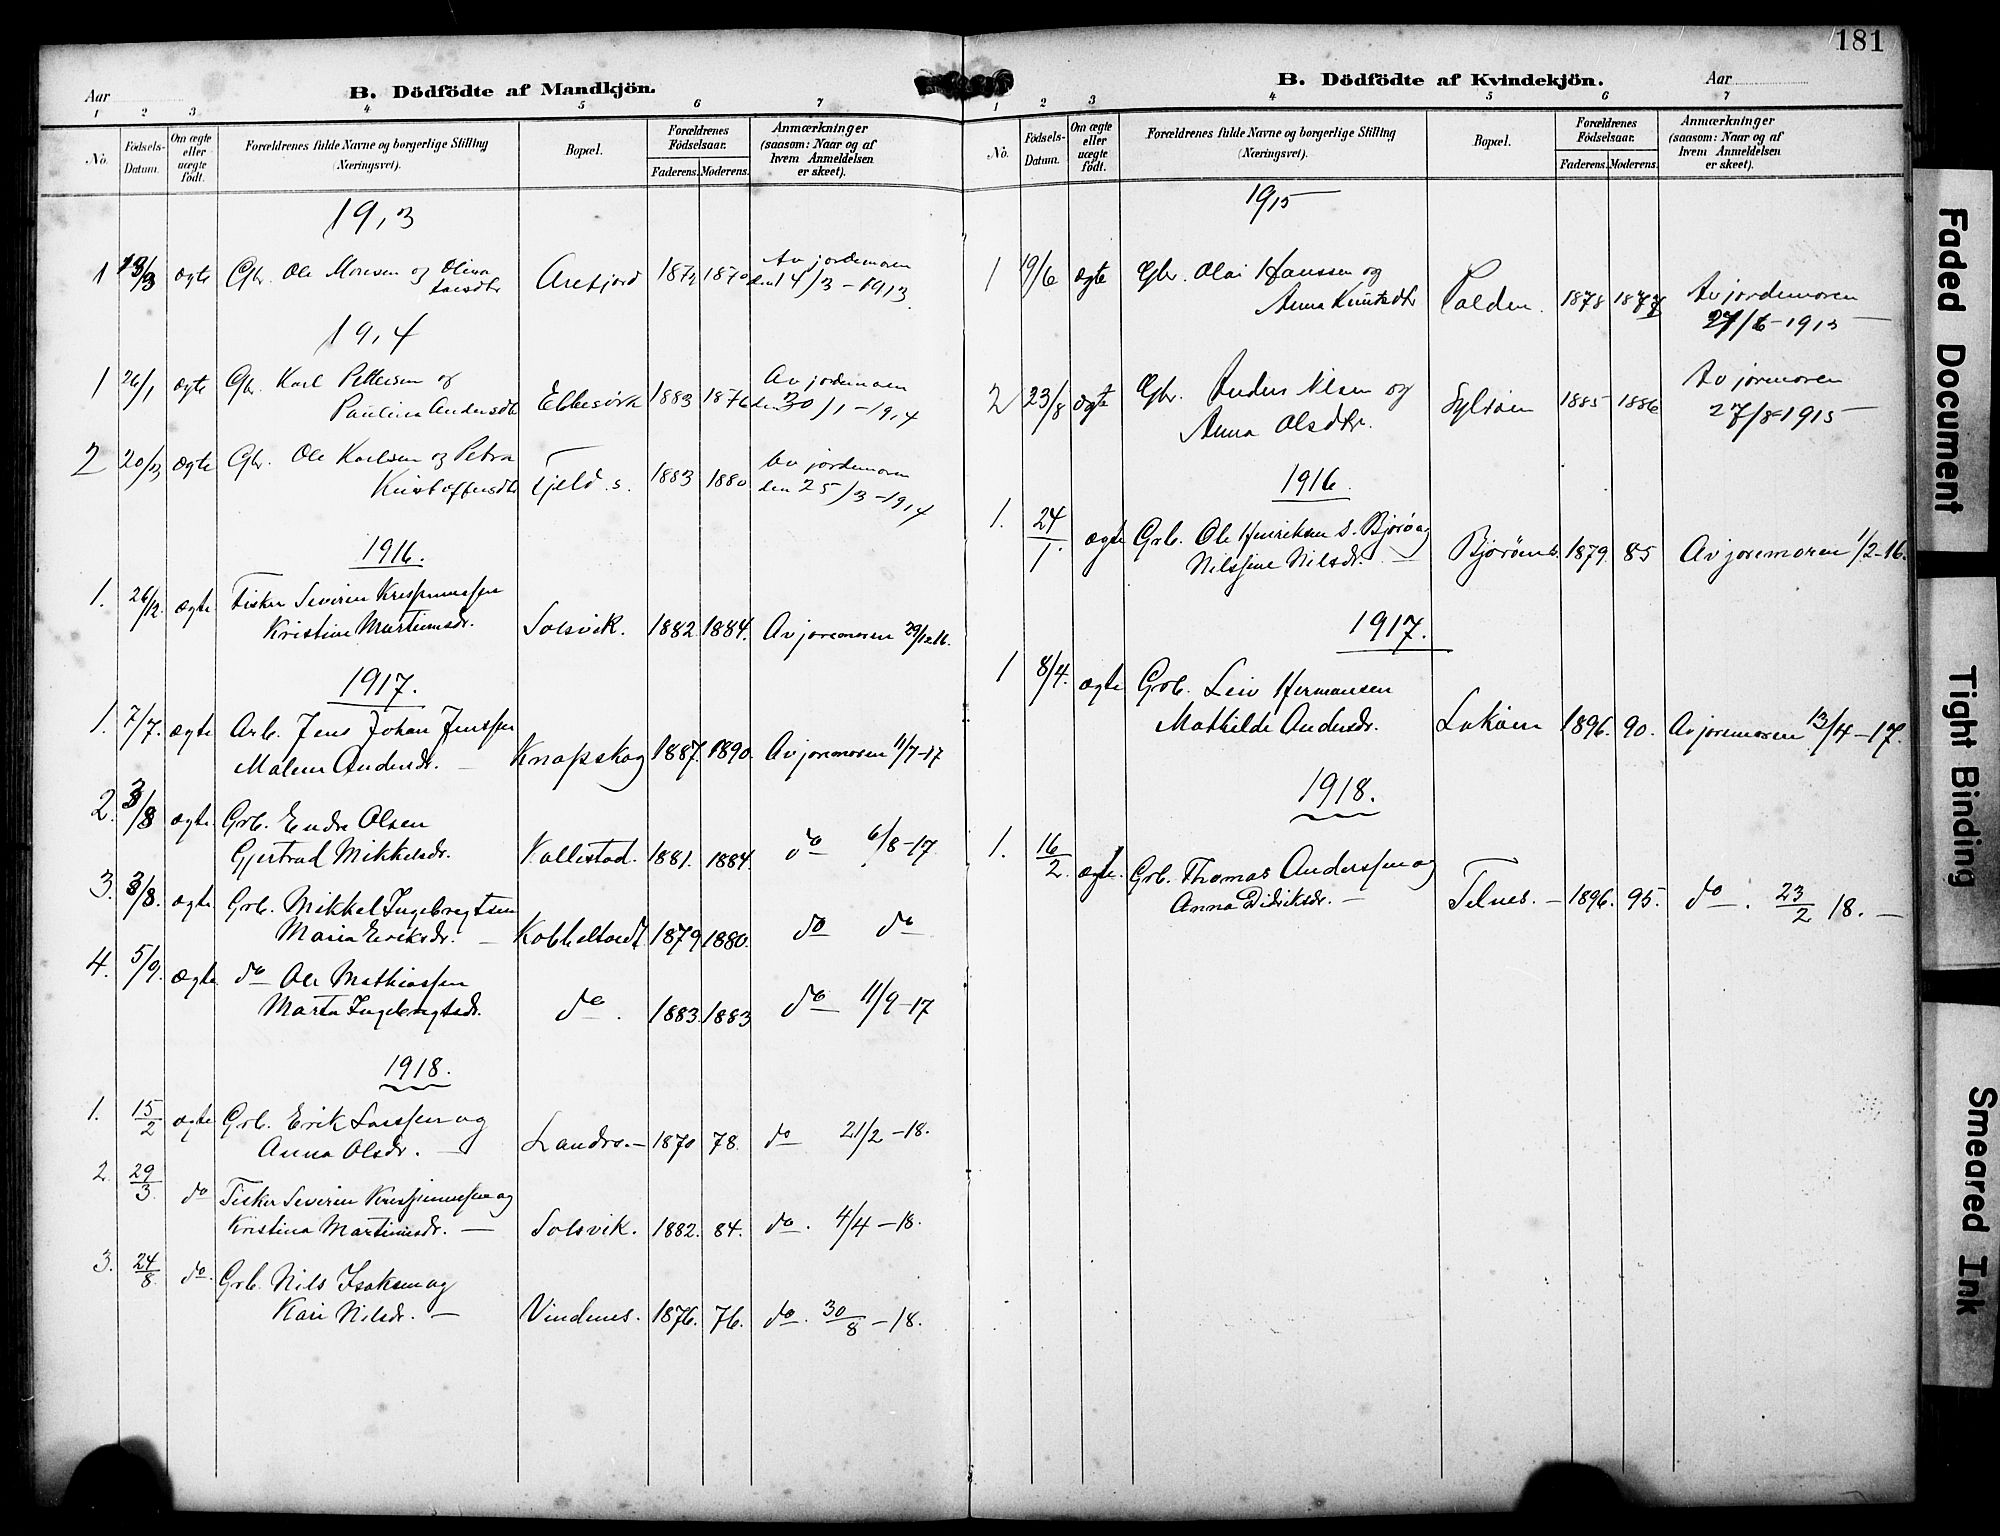 181
Aar
B. Dödfödte af Mandkjön.
1 2 3 4 5 6 7
No.
Födsels-Datum.
Om ægte eller uægte födt.
Forældrenes fulde Navne og borgerlige Stilling
(Næringsvei).
Bopæl.
Forældrenes Födselsaar.
Faderens. Moderens.
Anmærkninger
(saasom: Naar og af
hvem Anmeldelsen
er skeet).
1913
1 13/3 ægte Gbr. Ole Monsen og Olina
Larsdtr Arefjord 1872 1870 Av jordemoren
den 14/3-1913.
1914
1 26/1 ægte Gbr. Karl Pettersen og
Paulina Andersdtr Ebbesvik 1883 1876 Av jordemoren
den 30/1-1914
2 20/3 ægte Gbr. Ole Karlsen og Petra
Kristoffersdtr Fjeld s. 1883 1880 Av jordemoren
den 25/3-1914
1916.
1. 26/12. ægte Fisker Severin Krispinussen
Kristine Martinusdr. Solsvik. 1882 1884. Av joremoren 29/12 16.
1917.
1. 7/7. ægte Arb. Jens Johan Jenssen
Malene Andersdr. Knapskog 1887. 1890. Av joremoren 11/7-17
2. 3/8 ægte. Grb. Endre Olsen
Gjertrud Mikkelsdr. Kallestad. 1881. 1884. do 6/8-17
3. 3/8. ægte Grb. Mikkel Ingebregtsen
Maria Eriksdr. Kobbeltvedt 1879 1880. do do
4. 5/9. ægte do Ole Mathiassen
Marta Ingebregtsdr. do. 1883. 1883 do 11/9-17
1918.
1. 15/2 ægte Grb. Erik Larssen og
Anna Olsdr. Landro. 1870 78. do 21/2-18.
2. 29/3. do Fisker Severin Krispinussen og
Kristina Martinusdr. Solsvik. 1882. 84. do. 4/4-18.
3. 24/8. do. Grb. Nils Isaksen og
Kari Nilsdr. Vindenes. 1876. 76. do. 30/8-18.
B. Dödfödte af Kvindekjön.
Aar
1 2 3 4 5 6 7
No.
Födsels-Datum.
Om ægte eller uægte födt.
Forældrenes fulde Navne og borgerlige Stilling
(Næringsvei).
Bopæl.
Forældrenes Födselsaar.
Faderens. Moderens.
Anmærkninger
(saasom: Naar og af
hvem Anmeldelsen
er skeet).
1915
1 19/6 ægte Gbr. Olai Hanssen og
Anna Knutsdtr Polden. 1878 Av jordemoren
27/6-1915
2 23/8 ægte Gbr. Anders Nilsen og
Anna Olsdtr. Syltöen 1885 1886 Av joremoren
27/8-1915
1916.
1. 24/1. ægte Grb. Ole Henriksen s. Bjorö og
Nilssine Nilsdr. Björöens. 1879. 85 Av joremoren 1/2-16.
1917.
1 8/4. ægte Grb. Leiv Hermansen
Mathilde Andersdr. Loköen 1896. 90. Av joremoren 13/4-17.
1918.
1. 16/2. ægte. Grb. Thomas Anderssen og
Anna Didriksdr. Telnes. 1896. 95. do. 23/2 18.
Faded Document
Tight Binding
Smeared Ink